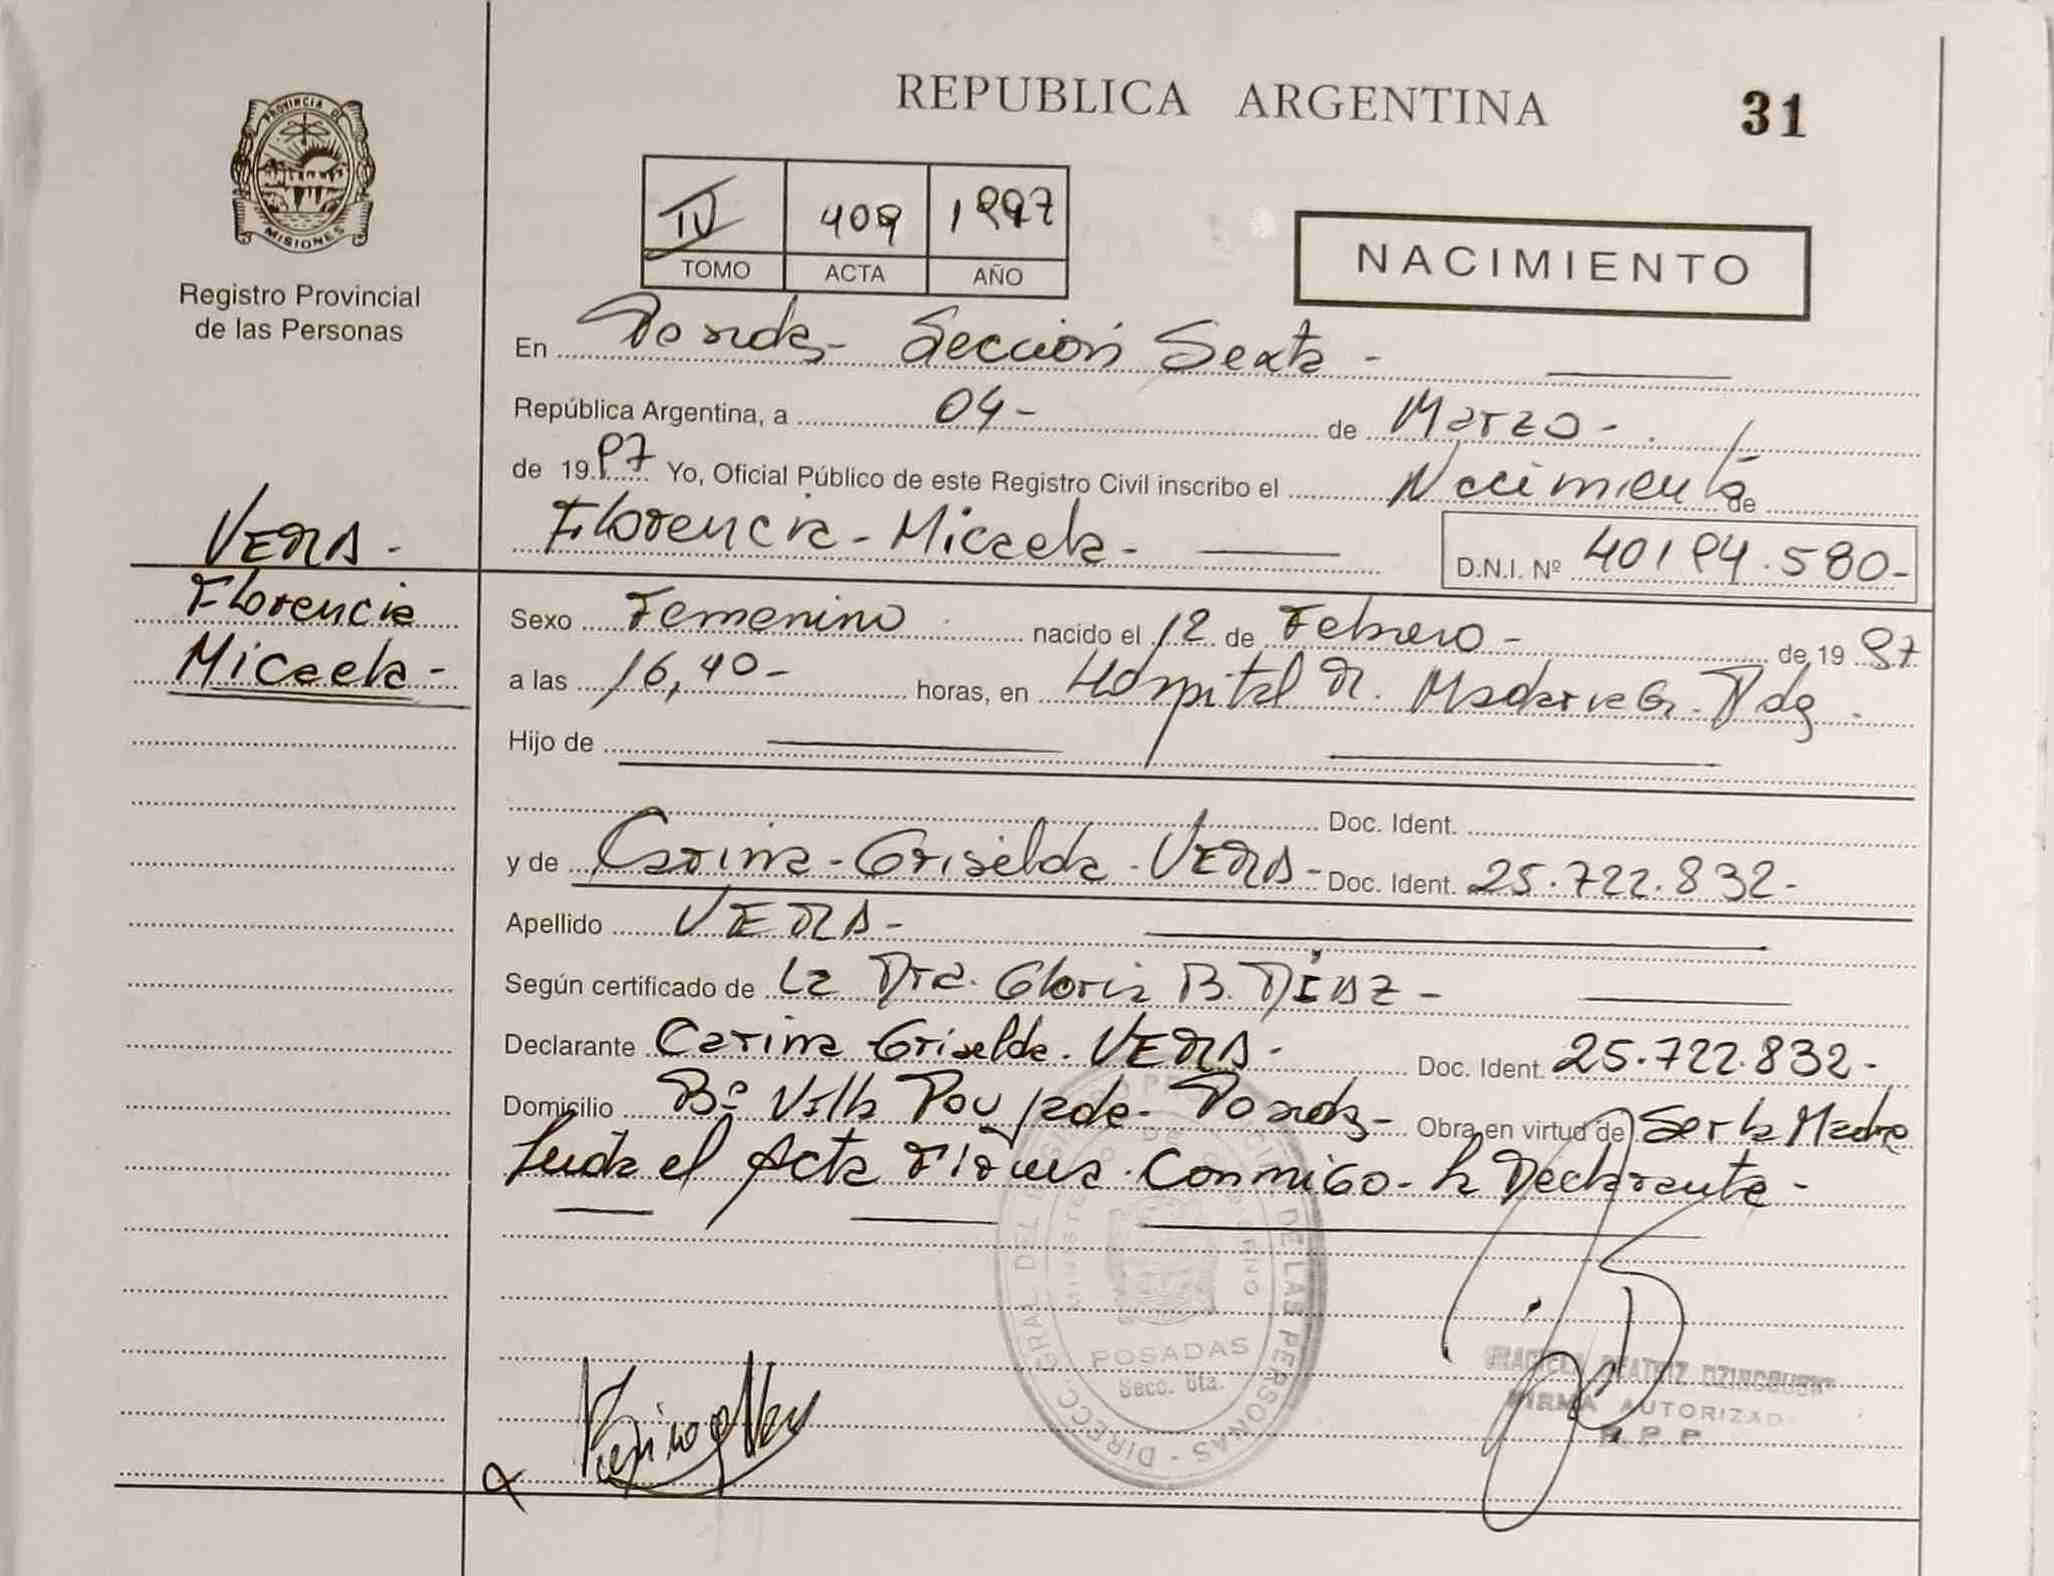 REPUBLICA ARGENTINA
31
PROVINCIA DE
MISIONES
Registro Provincial
de las Personas
IV 409 1997
TOMO ACTA AÑO
NACIMIENTO
En Posadas - Sección Sexta -
República Argentina, a 04 - de Marzo -
de 1997 Yo, Oficial Público de este Registro Civil inscribo el Nacimiento de
Florencia - Micaela - D.N.I. Nº 40194.580-
VERA -
Florencia
Micaela -
Sexo Femenino nacido el 12 de Febrero - de 1997
a las 16,40 - horas, en Hospital Dr. Madariaga. Pdas
Hijo de
Doc. Ident.
y de Carina - Griselda - VERA - Doc. Ident. 25.722.832-
Apellido VERA -
Según certificado de La Dra. Gloria B. DÍAZ -
Declarante Carina Griselda. VERA - Doc. Ident. 25.722.832-
Domicilio Bº Villa Poujade - Posadas - Obra en virtud de Ser la Madre
Leida el Acta Firma Conmigo - la Declarante -
DIRECC. GRAL DEL DE LAS PERSONAS
POSADAS
Secc. 6ta.
GRACIELA BEATRIZ
FIRMA AUTORIZAD
R. P. P.